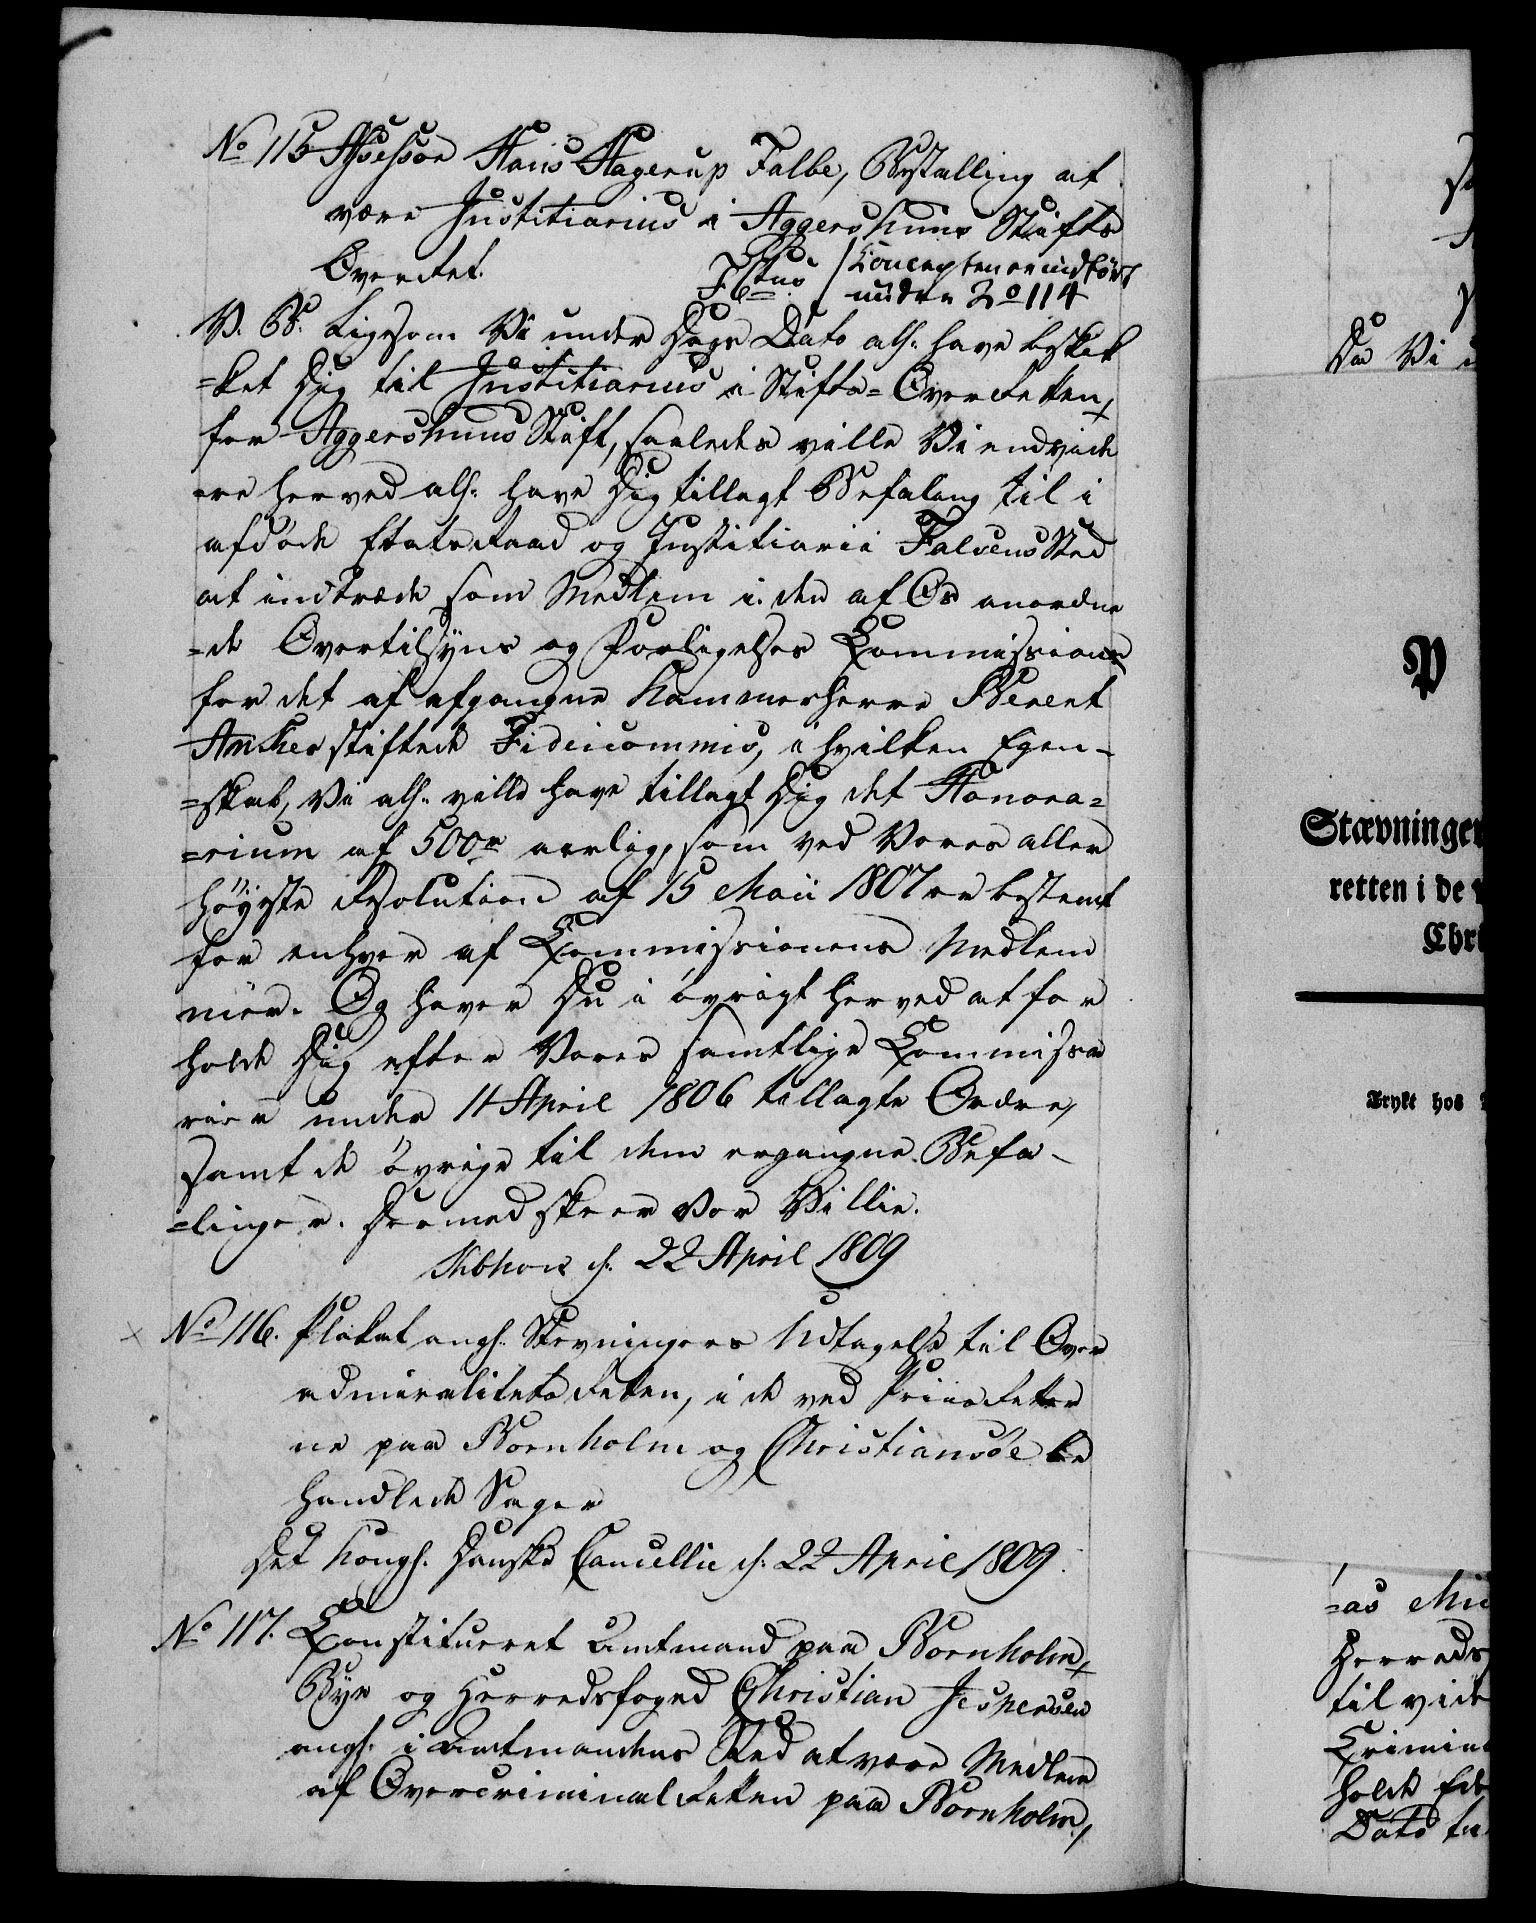 No 115 Assessor Hans Hagerup Falbe, Bestalling at
være Justitiarius i Aggershuus Stifts
Overret.
/Concepten er indført
under No 114
V. B. Ligesom Vi under Dags Dato alh. have beskik
=ket Dig til Justitiarius i Stifts=Overretten,
for Aggershuus Stift, saaledes ville Vi endvide
=re herved alh. have Dig tillagt Befaling til i
afdøde Etatsraad og Justitiarii Falsens Sted
at indtræde som Medlem i den af Os anordne
=de Overtilsyns og Forligelses Commission
for det af afgangne Kammerherre Berent
Anker stiftede Fideicommis, i hvilken Egen-
=skab, Vi alh. ville have tillagt Dig det Honora=
=rium af 500 rd aarlig, som ved Vores aller
høyeste Resolution af 15 Maii 1807 er bestemt
for enhver af Commissionens Medlem
mer. Og haver Du i øvrigt herved at for
holde Dig efter Vores samtlige Commissa
rier under 11 April 1806 tillagte Ordre,
samt de øvrige til dem ergangne Befa-
=linger. Dermed skeer Vor Villie.
Kbhavn d. 22 April 1809
No 116. Plakat angl. Stevningers Udtagelse til Over
admiralitetsretten, i de ved Priisretter
ne paa Bornholm og Christiansøe be
handlede Sager
Det Kongl. Danske Cancellie d. 22 April 1809.
No 117. Constitueret Amtmand paa Bornholm,
Bye og Herredsfoged Christian Jespersen
angl. i Amtmandens Sted at være Medlem
af Overcriminalretten paa Bornholm,
Da Vi
P
Stævninger
retten i de
Chri
Trykt hos
=as Mic
Herreds
til vide
Crimina
holde Ed
Dato